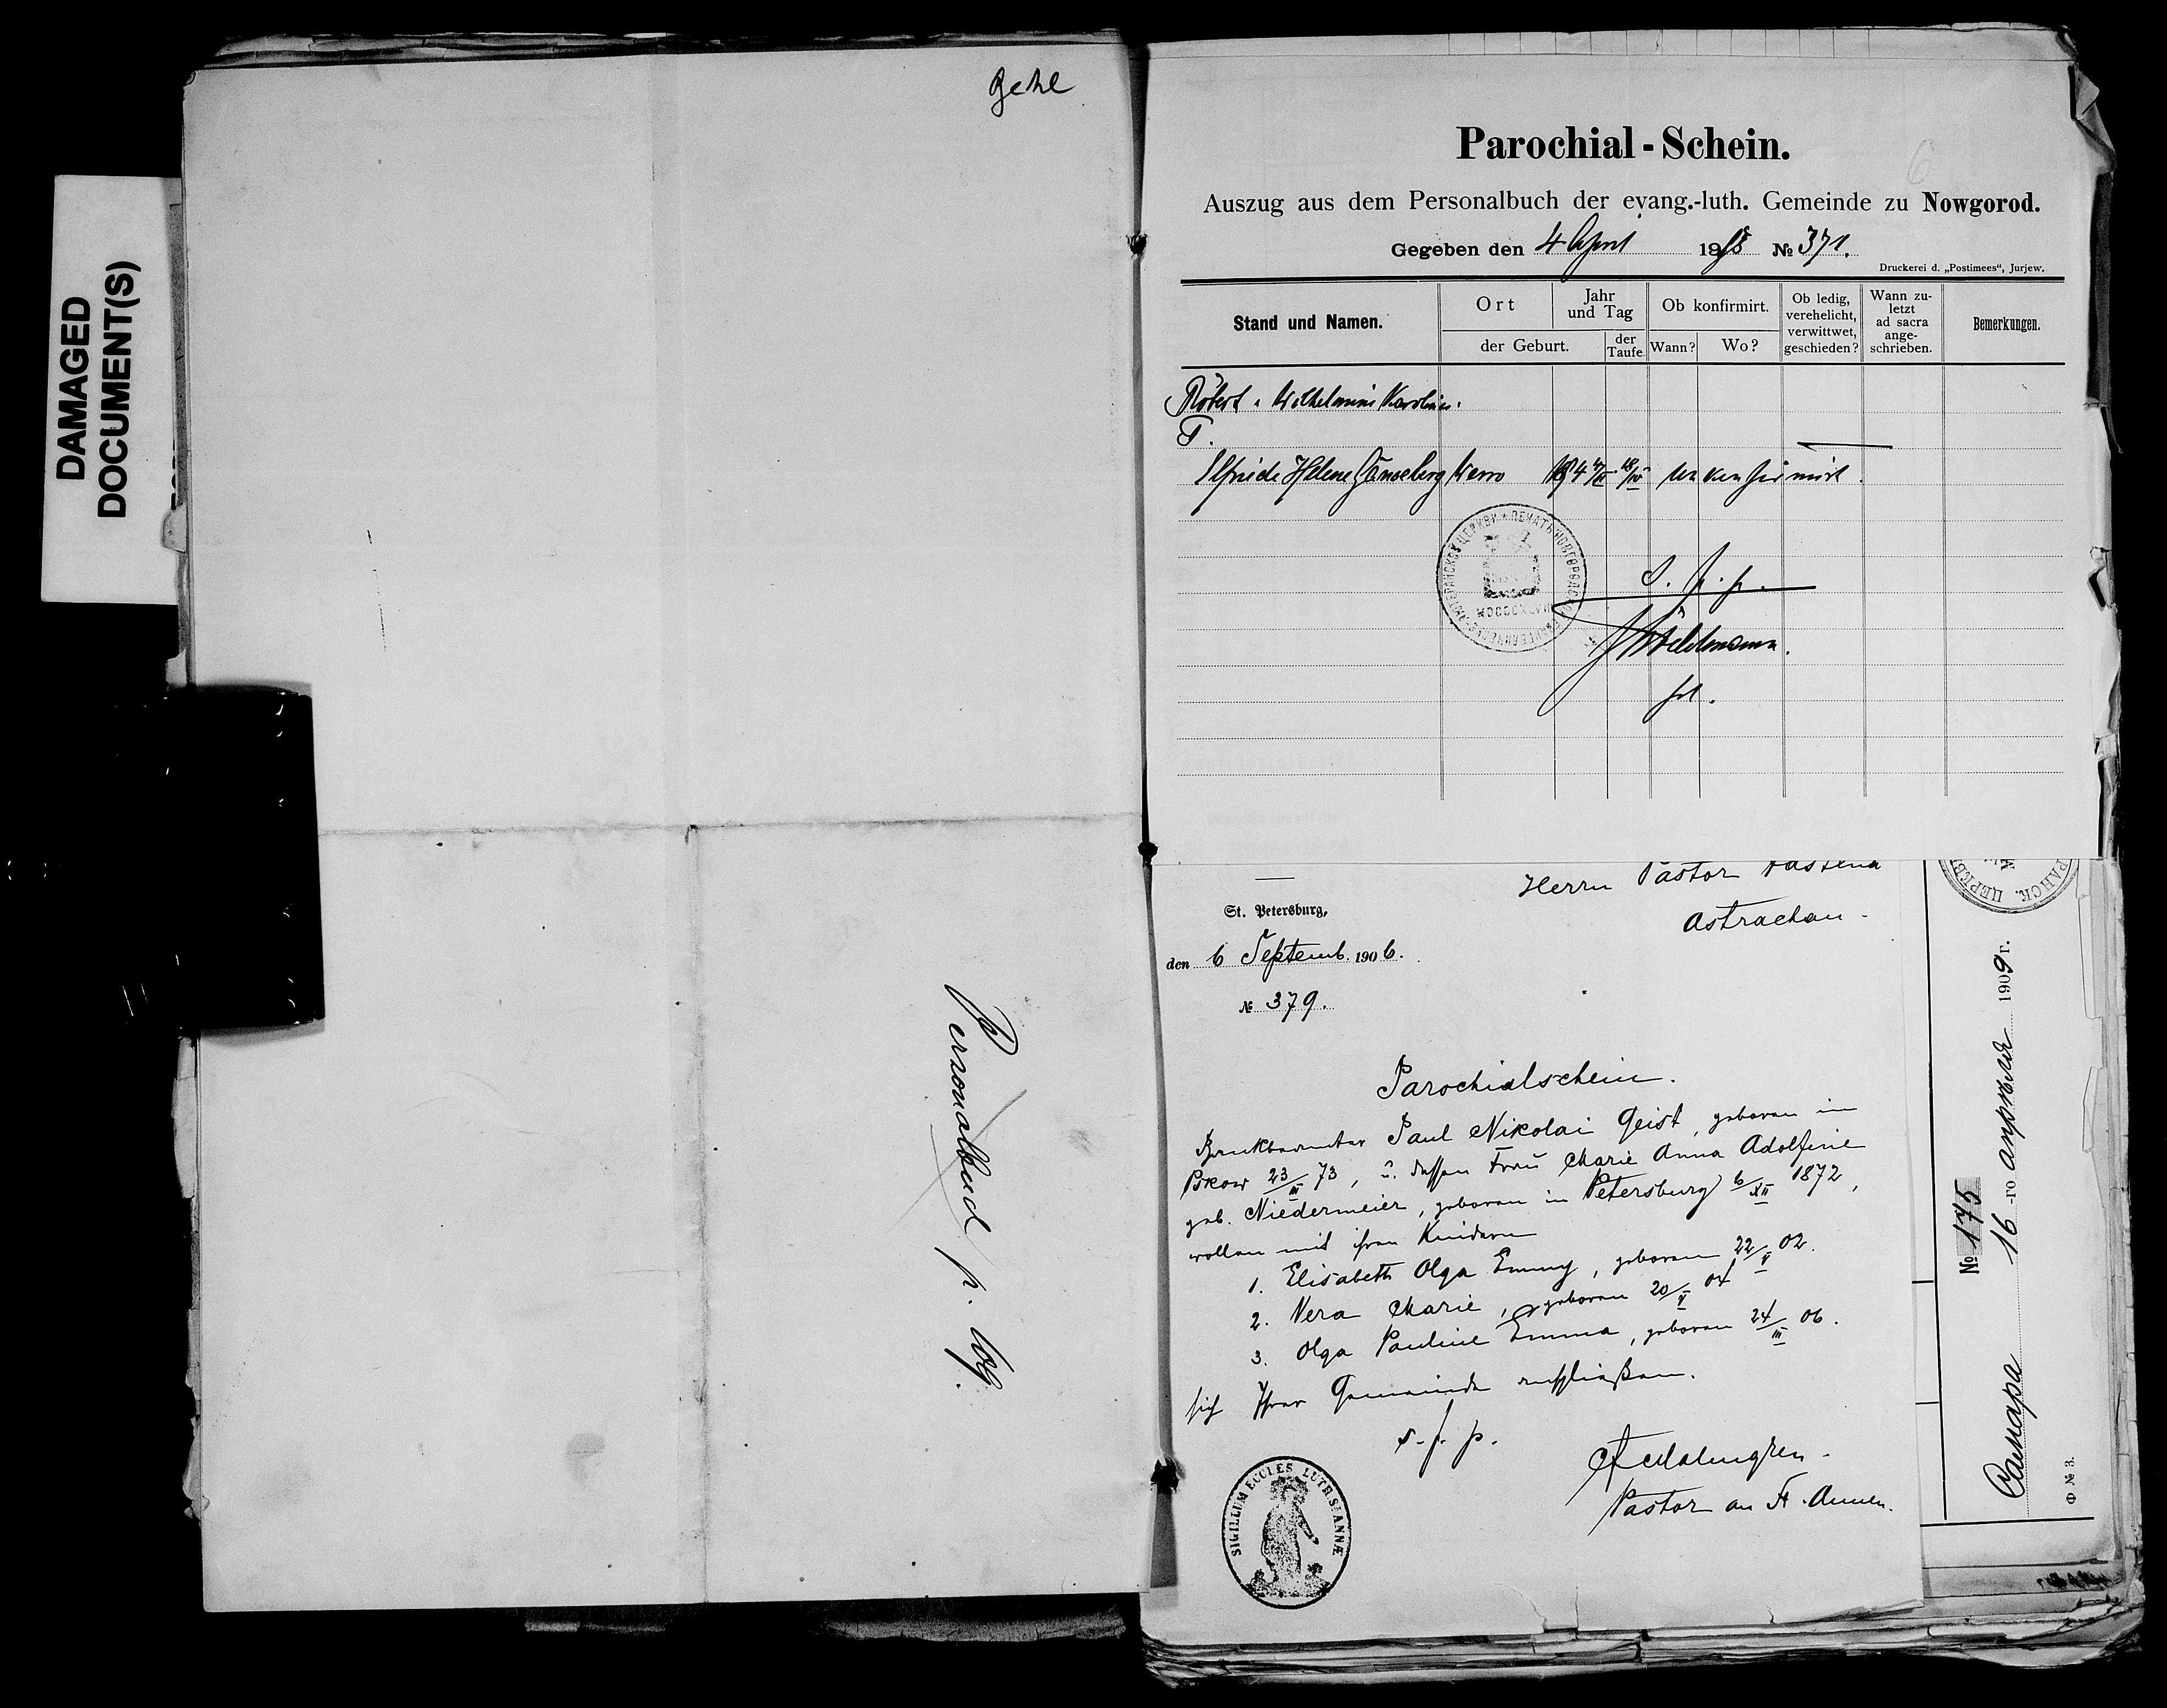 DAMAGED
DOCUMENT(S)
Personalbuch p. 
Parochial-Schein.
Auszug aus dem Personalbuch der evang.-luth. Gemeinde zu Nowgorod.
Gegeben den 4 April 19 № 371.
Druckerei d. „Postimees“, Jurjew.
Stand und Namen.
Ort
der Geburt.
Jahr und Tag
der Taufe.
Ob konfirmirt.
Wann?
Wo?
Ob ledig, verehelicht, verwittwet, geschieden?
Wann zuletzt ad sacra angeschrieben.
Bemerkungen.
Robert u. Wilhelmine Karoline.
T.
Elfriede Helene Werro unkonfirmirt.
S. f. p.
Herrn Pastor
Astrachan.
St. Petersburg,
den 6 Septemb. 1906.
№ 379.
Parochialschein.
Bankbeamter Paul Nikolai Geist, geboren in
Pskow 23/III 73, u. dessen Frau Marie Anna Adolfine
geb. Niedermeier, geboren in Petersburg 6/XII 1872,
wollen mit ihren Kindern
1. Elisabeth Olga Emmy, geboren 22/V 02.
2. Vera Marie, geboren 20/V 04
3. Olga Pauline Emma, geboren 24/III 06.
sich Ihrer Gemeinde anschließen.
s. f. p.
Pastor an St. Annen.
SIGILLUM ECCLES LUTH S: ANNÆ
№ 175
16-го апреля 1909 г.
Самара
Ф № 3.